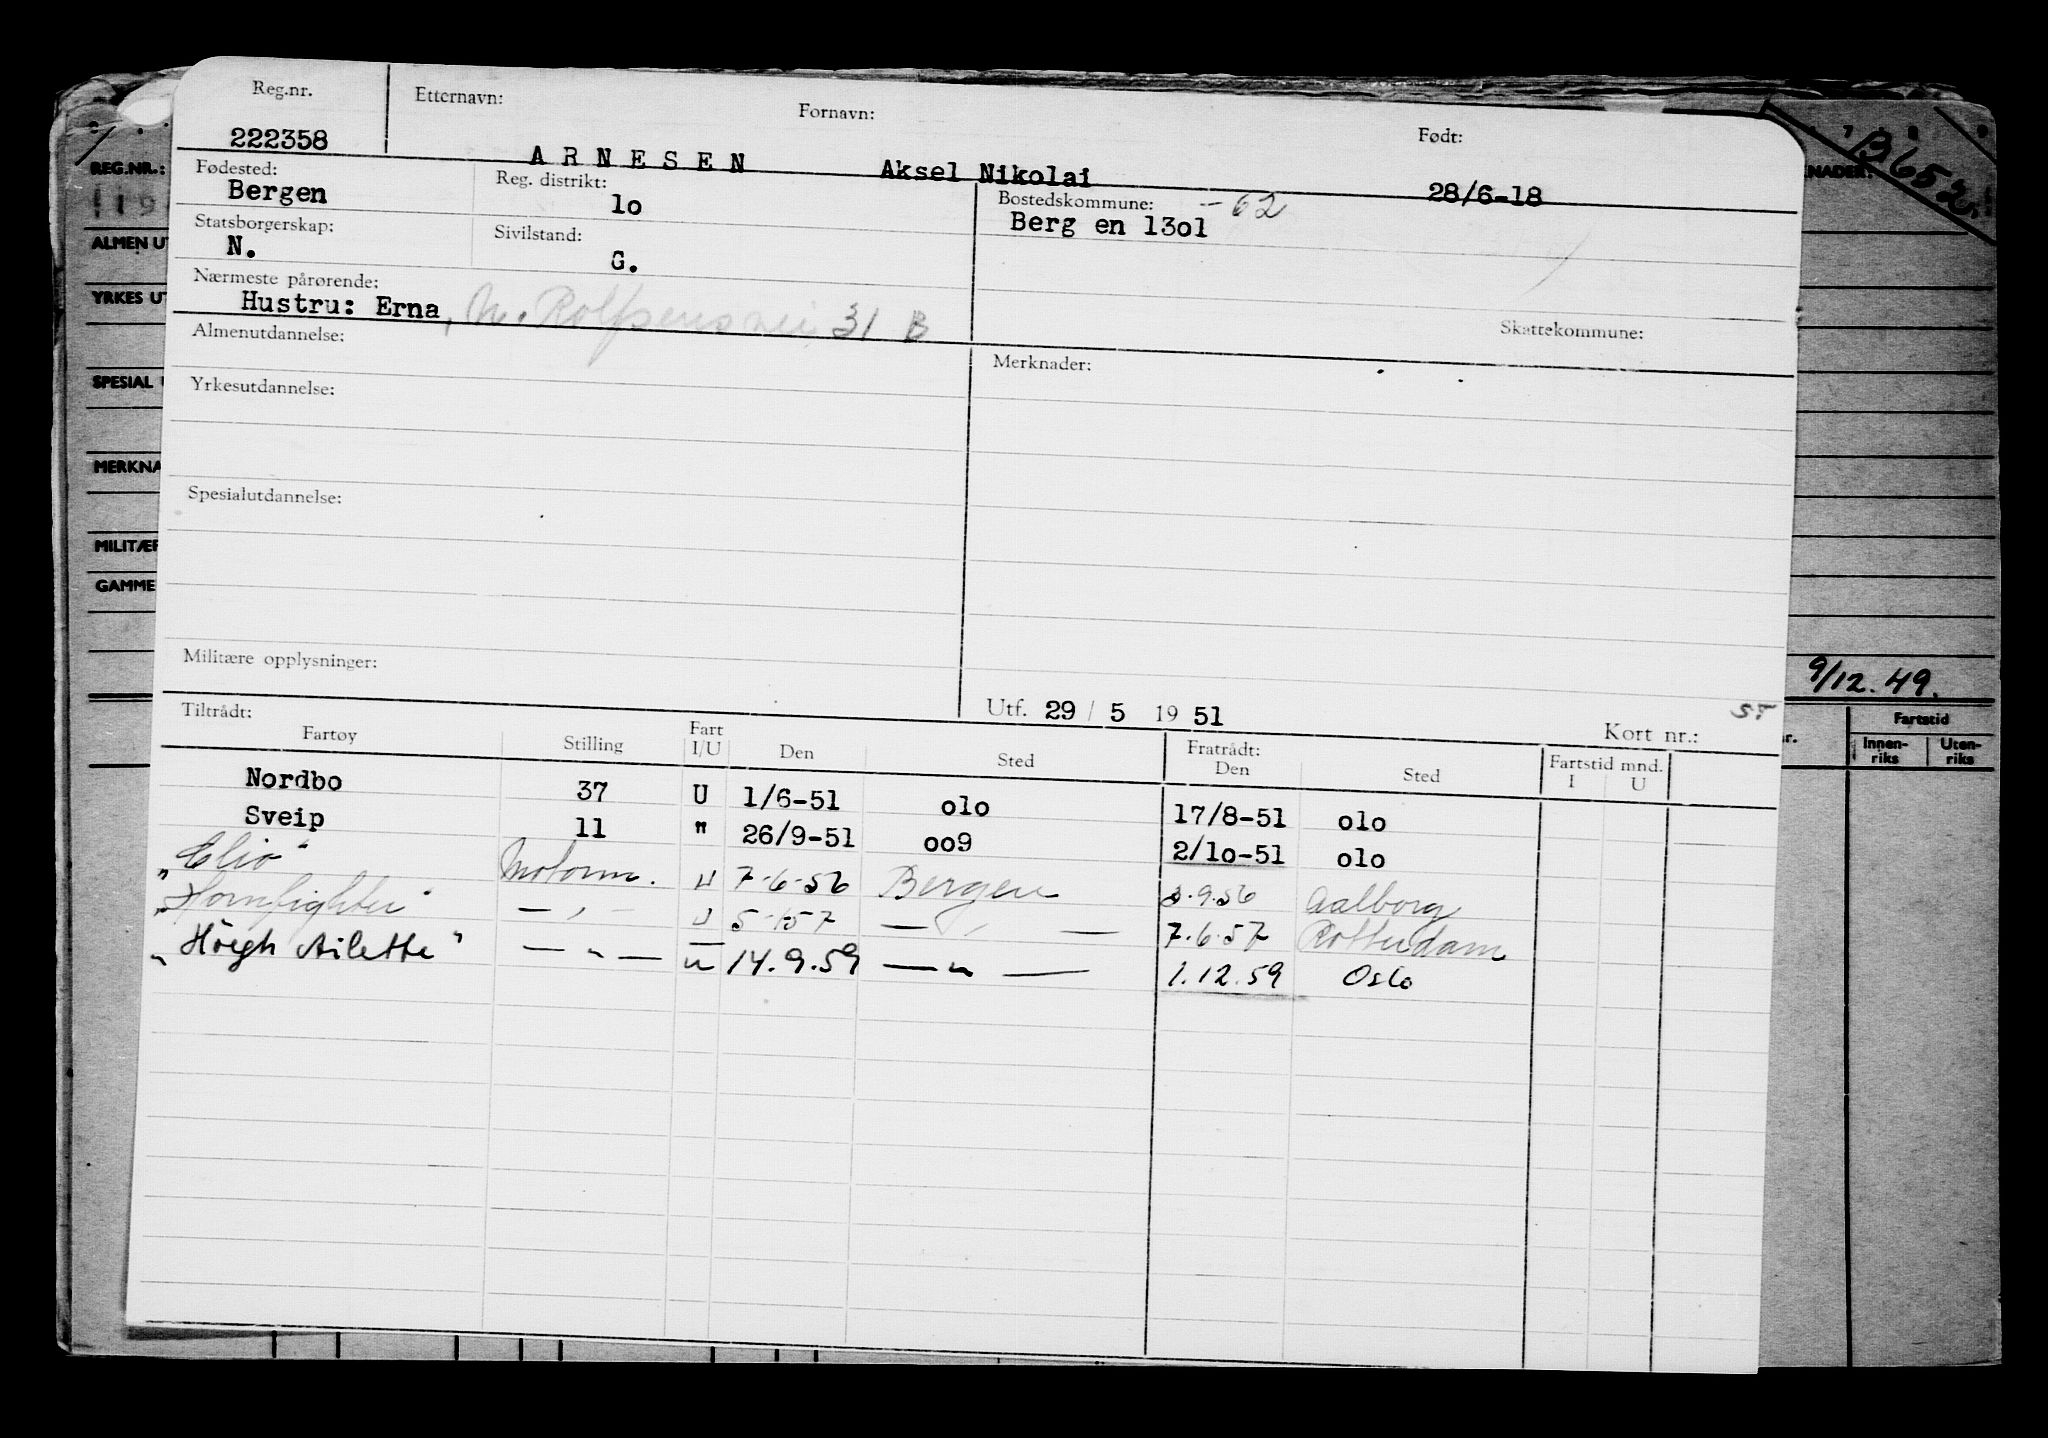 Reg.nr. Etternavn: Fornavn: Født:
222358 ARNESEN Aksel Nikolai 28/6-18
Fødested: Reg. distrikt: Bostedskommune: -62
Bergen 1o Berg en 13o1
Statsborgerskap: Sivilstand:
N. G.
Nærmeste pårørende:
Hustru: Erna, 31 B
Skattekommune:
Almenutdannelse: Merknader:
Yrkesutdannelse:
Spesialutdannelse:
Militære opplysninger:
Utf. 29 / 5 19 51 Kort nr.:
Tiltrådt: Fratrådt:
Fartøy Stilling Fart I/U Den Sted Den Sted Fartstid mnd. I U
Nordbo 37 U 1/6-51 o1o 17/8-51 o1o
Sveip 11 " 26/9-51 oo9 2/1o-51 o1o
"Clio" Motorm. U 7-6-56 Bergen .9.56 Aalborg
— " — 7.6.57 Rotterdam
"Höegh Ailette" — " — " 14.9.59 — " — 1.12.59 Oslo
REG.NR.:
ALMEN UT
YRKES UT
SPESIAL
MERKNA
MILITÆR
GAMME
KNADER:
13652
9/12.49.
Fartstid
Innen-riks Uten-riks